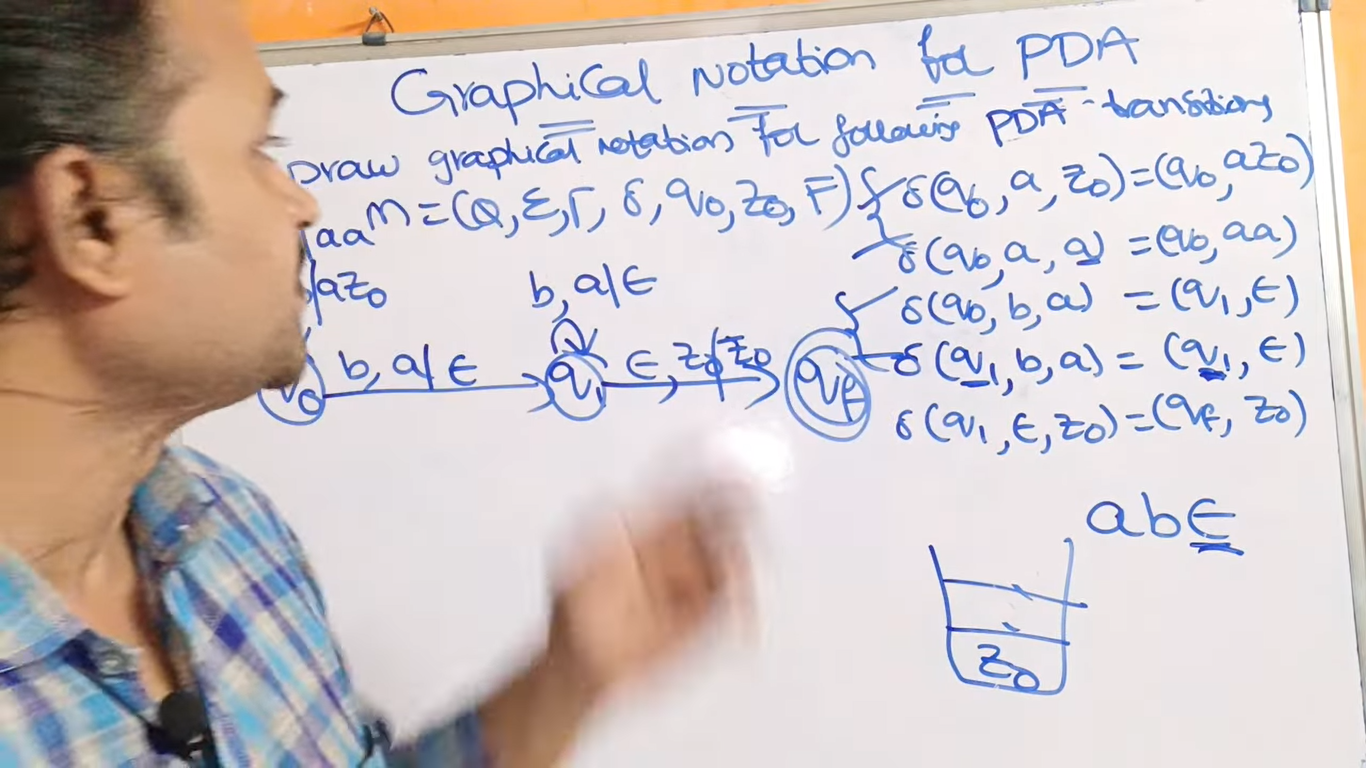 Graphical Notation for PDA
Draw graphical notation for following PDA transitions
M = (Q, Σ, Γ, δ, q0, z0, F)
δ(q0, a, z0) = (q0, az0)
δ(q0, a, a) = (q0, aa)
δ(q0, b, a) = (q1, ε)
δ(q1, b, a) = (q1, ε)
δ(q1, ε, z0) = (qf, z0)
|aa
|az0
b, a|ε
b, a|ε
ε, z0|z0
q0
q1
qf
abε
z0